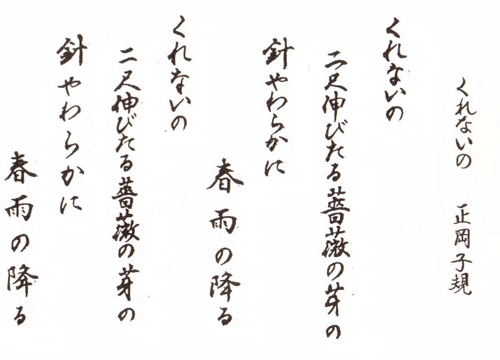 くれないの　正岡子規
くれないの
二尺伸びたる薔薇の芽の
針やわらかに
春雨の降る
くれないの
二尺伸びたる薔薇の芽の
針やわらかに
春雨の降る